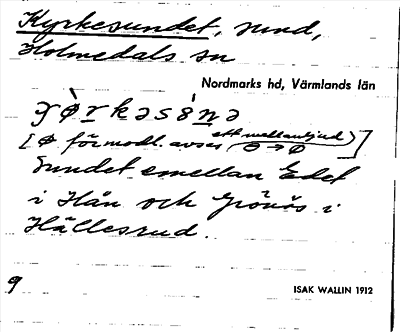 Kyrkesundet, sund,
Holmedals sn
Nordmarks hd, Värmlands län
[ø förmodl. avses ett mellanljud
ɵ → ø]
Sundet emellan Edet
i Hån och Grönäs i
Hällesrud.
9
ISAK WALLIN 1912